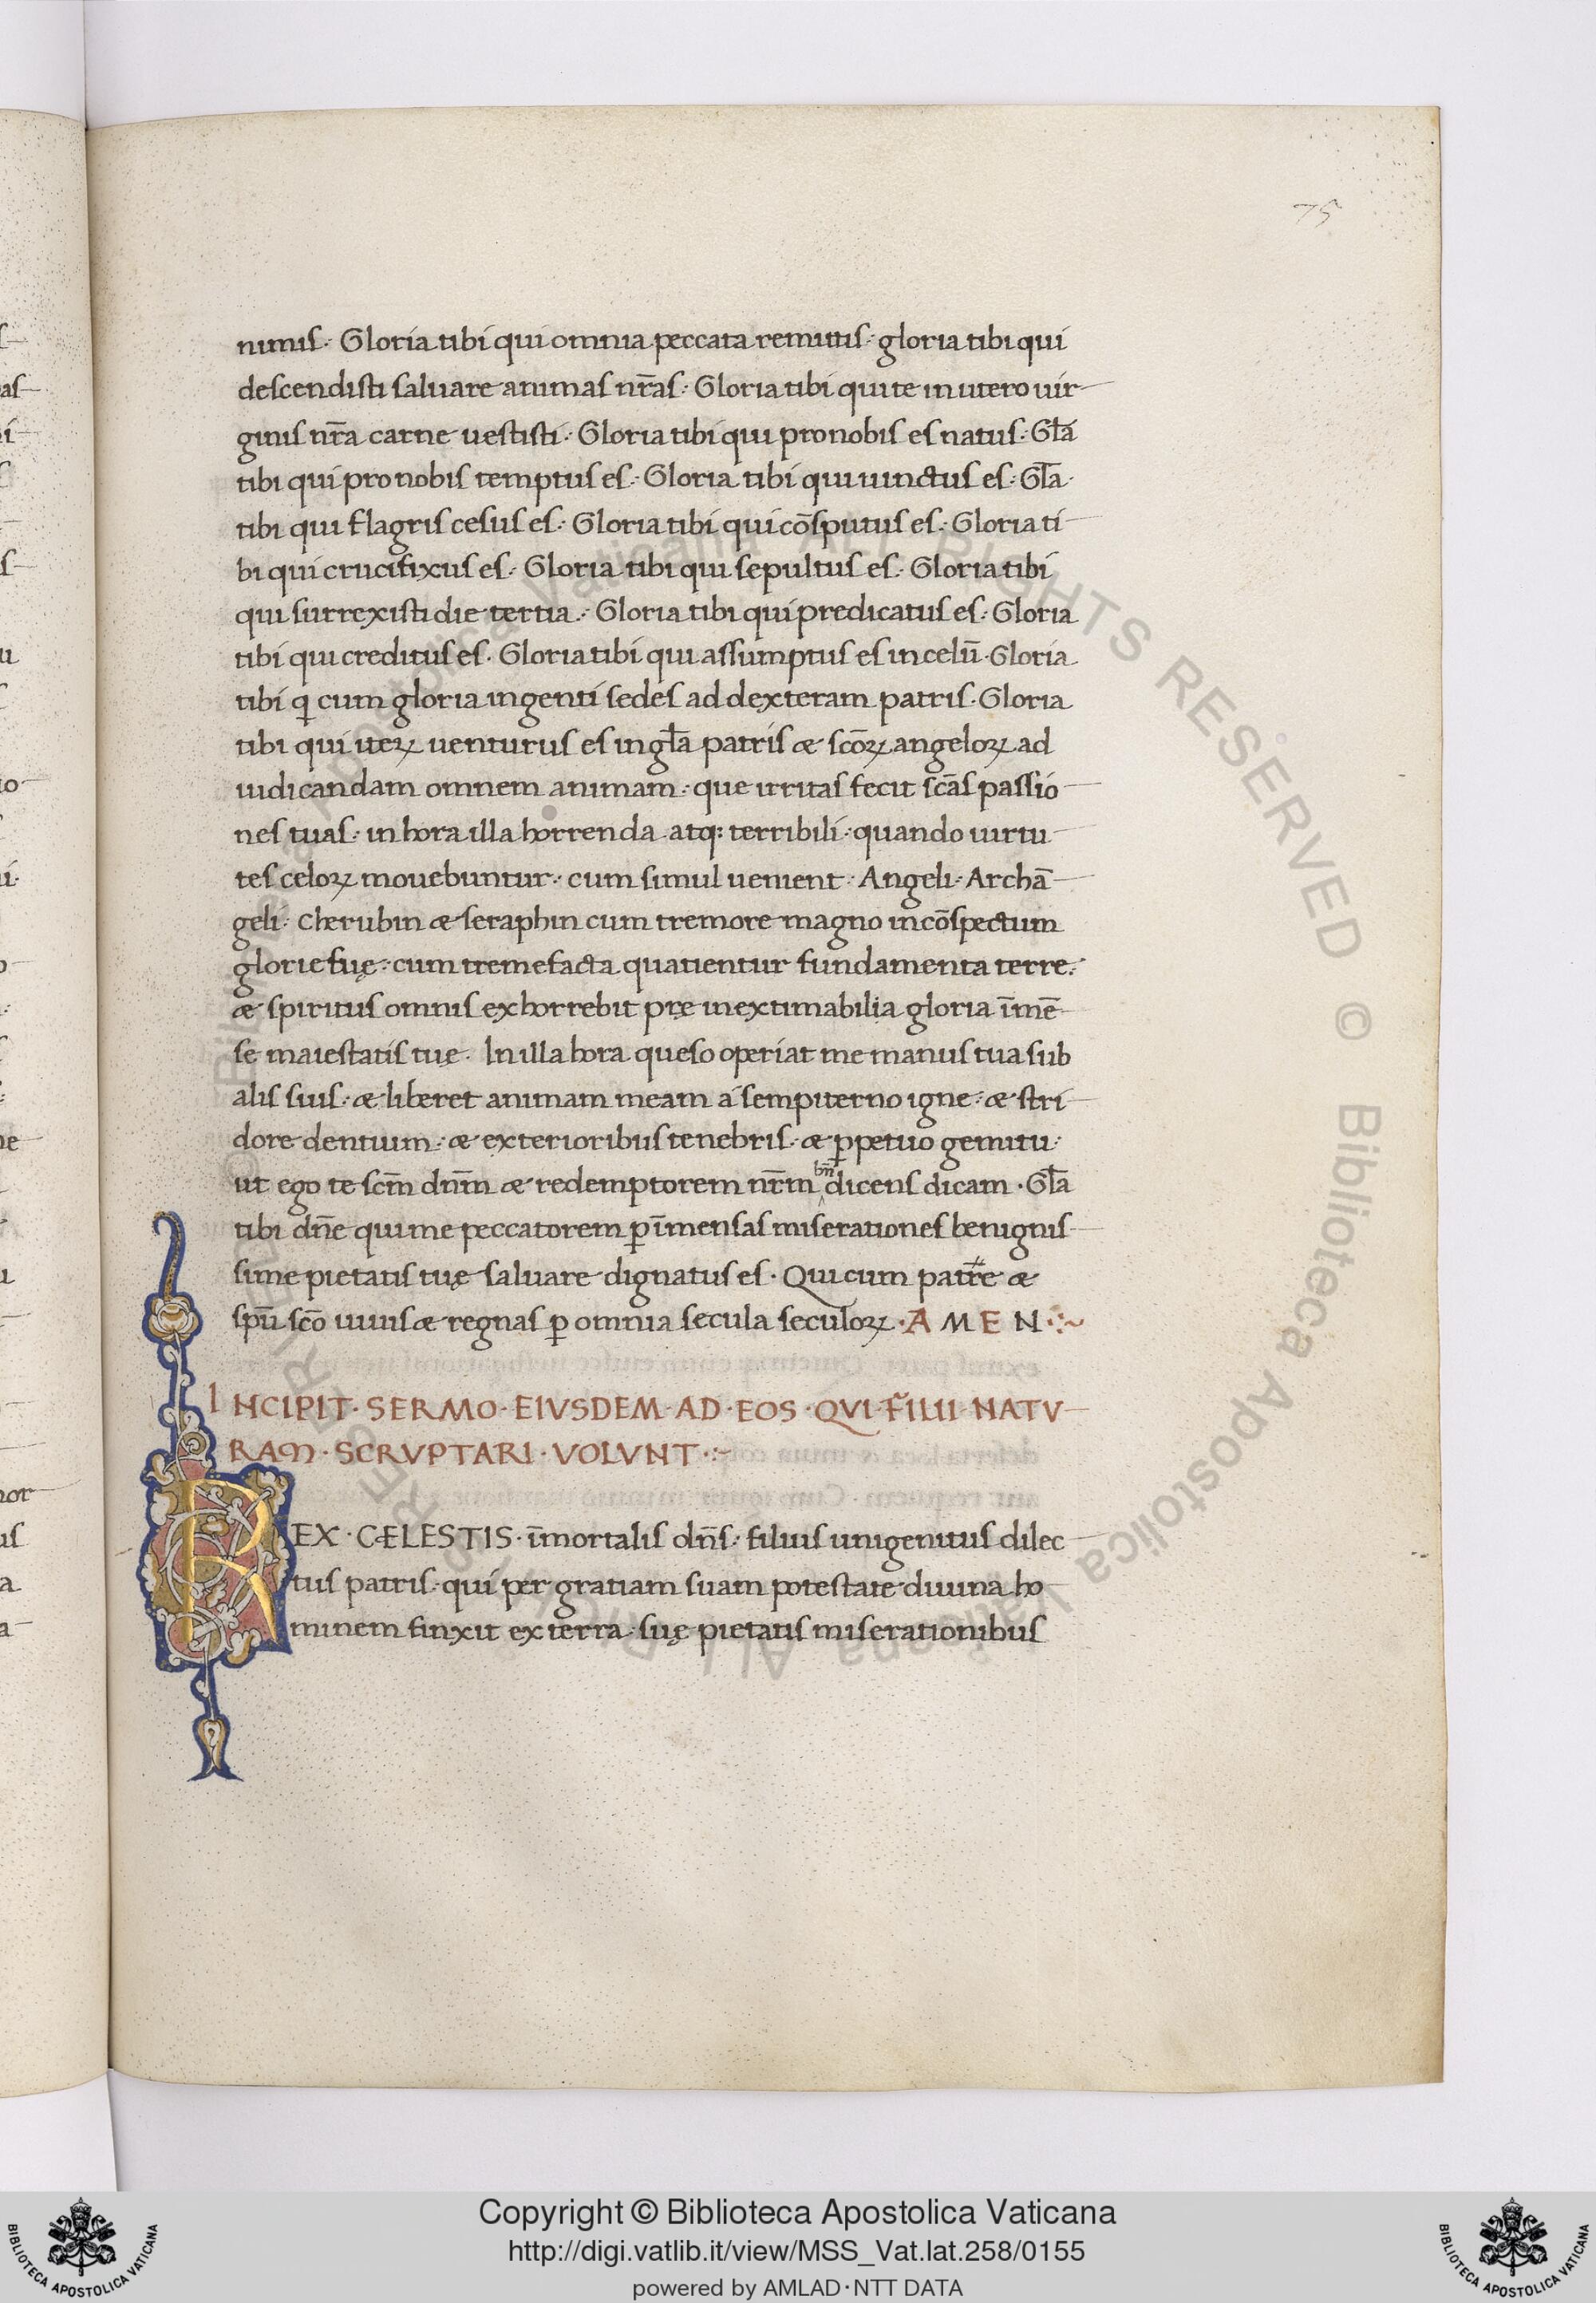 75
nimis· Gloria tibi qui omnia peccata remittis· gloria tibi qui
descendisti saluare animas nr̄as· Gloria tibi qui te in utero uir
ginis nr̄a carne uestisti· Gloria tibi qui pro nobis es natus· Gl̄a
tibi qui pro nobis temptus es· Gloria tibi qui uinctus es· Gl̄a
tibi qui flagris cesus es· Gloria tibi qui cōsputus es· Gloria ti
bi qui crucifixus es· Gloria tibi qui sepultus es· Gloria tibi
qui surrexisti die tertia· Gloria tibi qui predicatus es· Gloria
tibi qui creditus es· Gloria tibi qui assumptus es in celū· Gloria
tibi q̄ cum gloria ingenti sedes ad dexteram patris· Gloria
tibi qui iteꝝ uenturus es in gl̄a patris æ scōꝝ angeloꝝ ad
iudicandam omnem animam· que irritas fecit sc̄as passio
nes tuas· in hora illa horrenda atq: terribili· quando uirtu
tes celoꝝ mouebuntur· cum simul uenient· Angeli· Archā
geli· Cherubin æ seraphin cum tremore magno in cōspectum
glorie suę· cum tremefacta quatientur fundamenta terre·
æ spiritus omnis exhorrebit prę inextimabilia gloria īmē
se maiestatis tuę· In illa hora queso operiat me manus tua sub
alis suis· æ liberet animam meam a sempiterno igne· æ stri
dore dentium· æ exterioribus tenebris· æ ꝑpetuo gemitu·
ut ego te scm̄ dnm̄ æ redemptorem nr̄m bn̄dicens dicam· Gl̄a
tibi dn̄e qui me peccatorem ꝑ īmensas miserationes benignis
sime pietatis tuę saluare dignatus es· Qui cum patre æ
spū scō uiuis æ regnas ꝑ omnia secula seculoꝝ· AMEN
INCIPIT· SERMO· EIVSDEM· AD· EOS· QVI· FILII· NATV
RAM· SCRVPTARI· VOLVNT·
REX· CÆLESTIS· īmortalis dn̄s· filius unigenitus dilec
tus patris· qui per gratiam suam potestate diuina ho
minem finxit ex terra· suę pietatis miserationibus
© Biblioteca Apostolica Vaticana ALL RIGHTS RESERVED
© Biblioteca Apostolica Vaticana ALL RIGHTS RESERVED
Copyright © Biblioteca Apostolica Vaticana
http://digi.vatlib.it/view/MSS_Vat.lat.258/0155
powered by AMLAD·NTT DATA
BIBLIOTECA APOSTOLICA VATICANA
BIBLIOTECA APOSTOLICA VATICANA